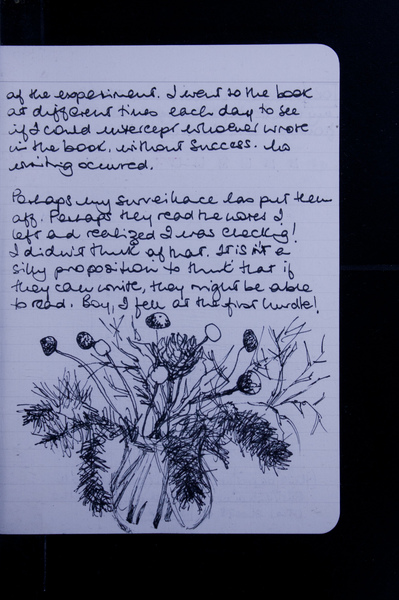 of the experiment. I went to the book
at different times each day to see
if I could intercept whoever wrote
in the book, without success. No
writing occured.
Perhaps my surveillace has put them
off. Perhaps they read the notes I
left and realized I was checking!
I didn't think of that. It isn't a
silly proposition to think that if
they can write, they might be able
to read. Boy, I fell at the first hurdle!